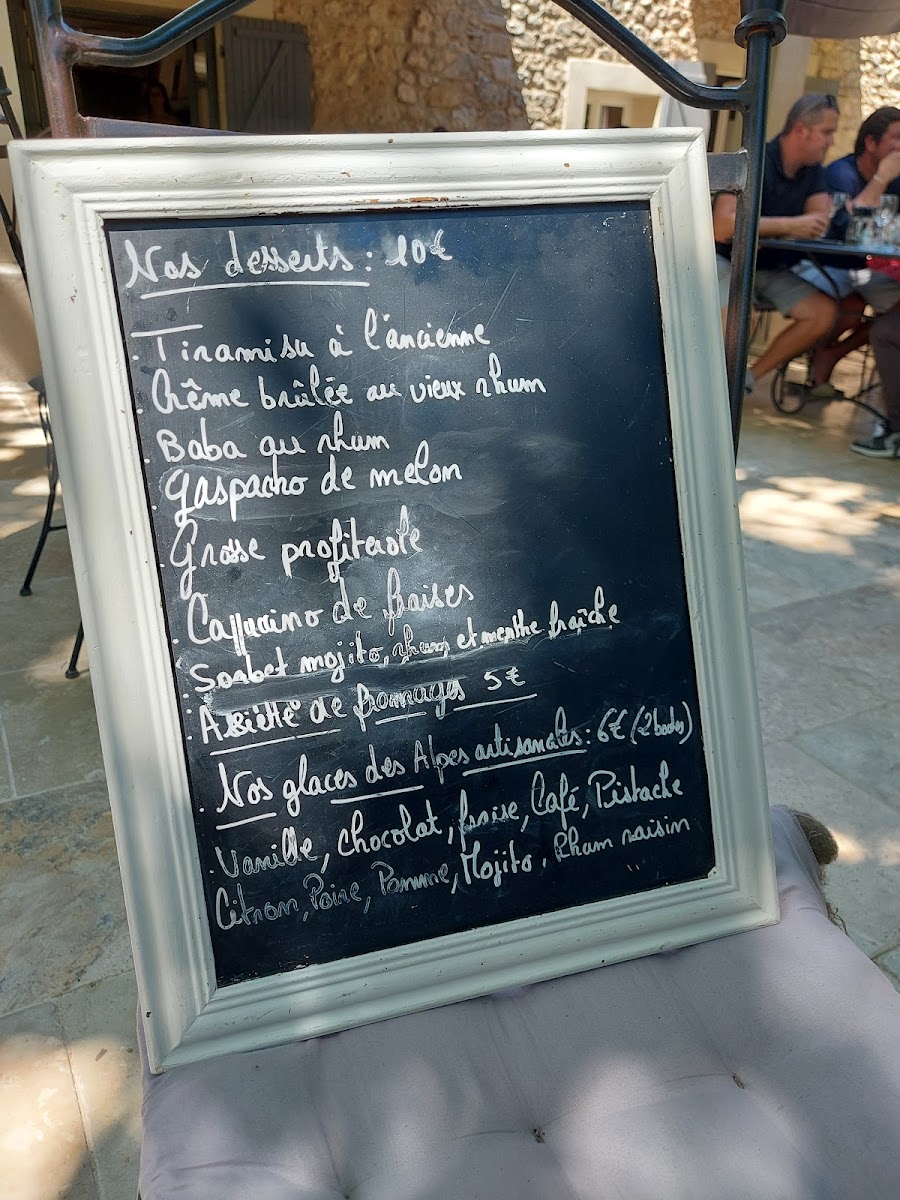 Nos desserts : 10€
. Tiramisu à l'ancienne
. Crême brûlée au vieux rhum
. Baba au rhum
. Gaspacho de melon
. Grosse profiterole
. Cappucino de fraises
. Sorbet mojito, rhum et menthe fraîche
. Assiette de fromages 5€
. Nos glaces des Alpes artisanales : 6€ (2 boules)
. Vanille, chocolat, fraise, Café, Pistache
Citron, Poire, Pomme, Mojito. Rhum raisin